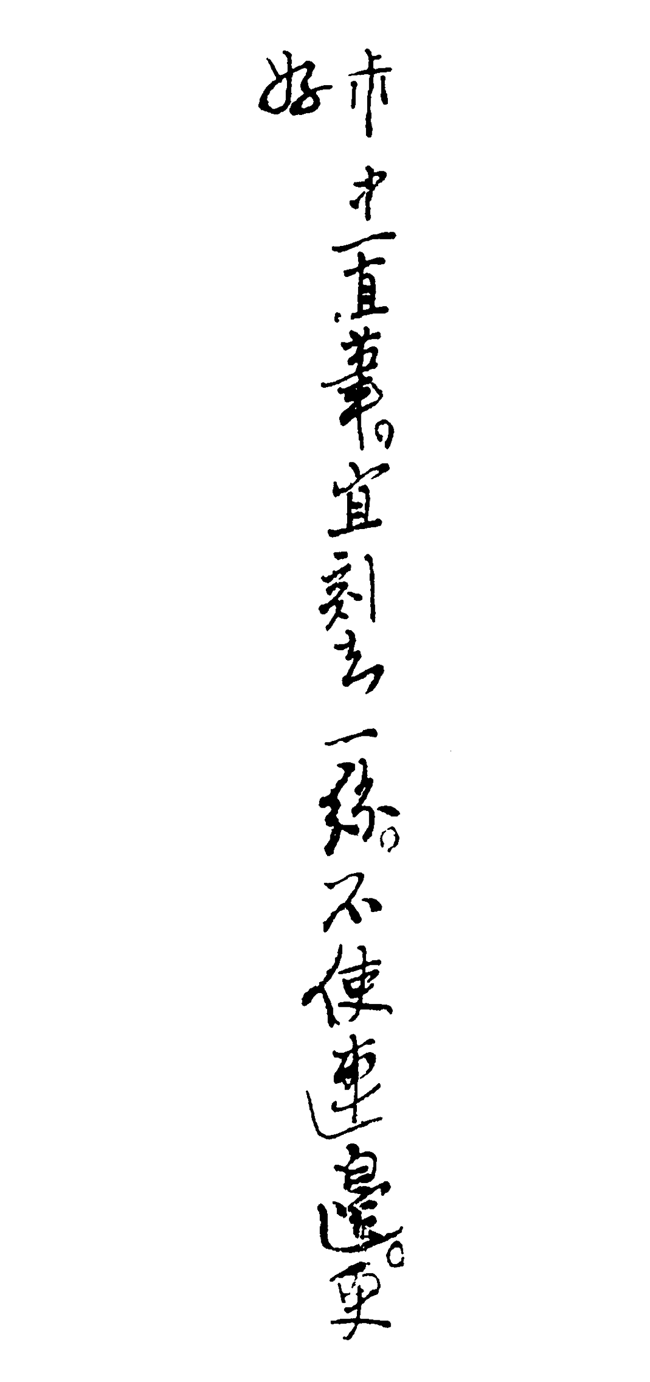 尗中一直筆。宜刻去一絲。不使連邊。更
好